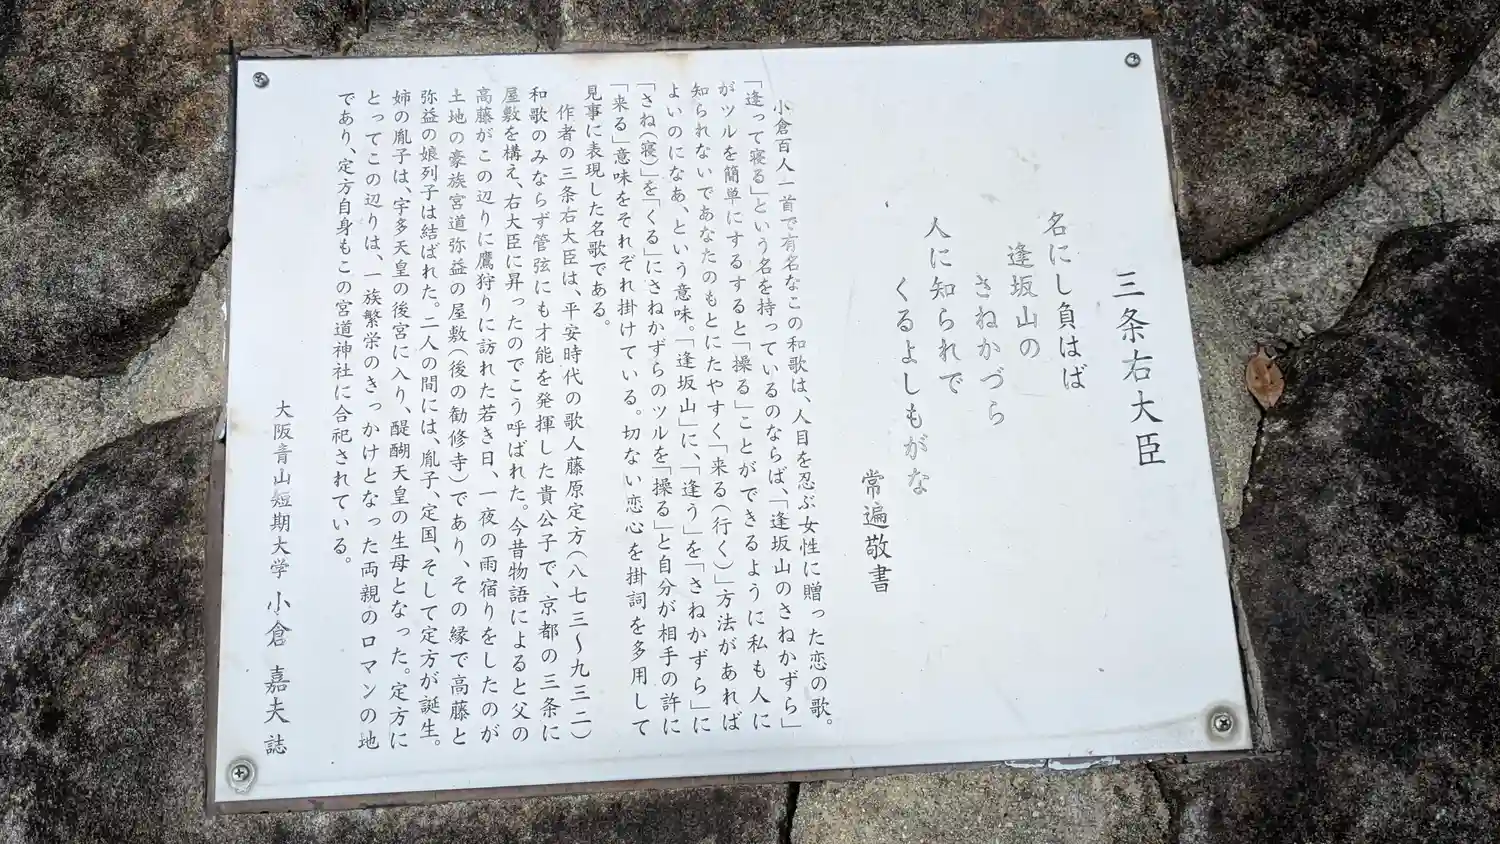 三条右大臣
名にし負はば
逢坂山の
さねかづら
人に知られで
くるよしもがな
常遍敬書
小倉百人一首で有名なこの和歌は、人目を忍ぶ女性に贈った恋の歌。
「逢って寝る」という名を持っているのならば、「逢坂山のさねかずら」
がツルを簡単にするすると「操る」ことができるように私も人に
知られないであなたのもとにたやすく「来る(行く)」方法があれば
よいのになあ、という意味。「逢坂山」に、「逢う」を「さねかずら」に
「さね(寝)」を「くる」にさねかずらのツルを「操る」と自分が相手の許に
「来る」意味をそれぞれ掛けている。切ない恋心を掛詞を多用して
見事に表現した名歌である。
作者の三条右大臣は、平安時代の歌人藤原定方(八七三〜九三二)
和歌のみならず管弦にも才能を発揮した貴公子で、京都の三条に
屋敷を構え、右大臣に昇ったのでこう呼ばれた。今昔物語によると父の
高藤がこの辺りに鷹狩りに訪れた若き日、一夜の雨宿りをしたのが
土地の豪族宮道弥益の屋敷(後の勧修寺)であり、その縁で高藤と
弥益の娘列子は結ばれた。二人の間には、胤子、定国、そして定方が誕生。
姉の胤子は、宇多天皇の後宮に入り、醍醐天皇の生母となった。定方に
とってこの辺りは、一族繁栄のきっかけとなった両親のロマンの地
であり、定方自身もこの宮道神社に合祀されている。
大阪青山短期大学 小倉 嘉夫 誌